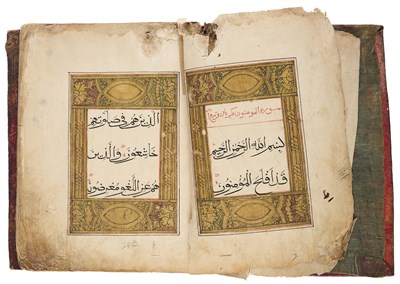 سورة المؤمنون مكية
بسم الله الرحمن الرحيم
قد افلح المؤمنون
الذين هم في صلوتهم
خاشعون والذين
هم عن اللغو معرضون